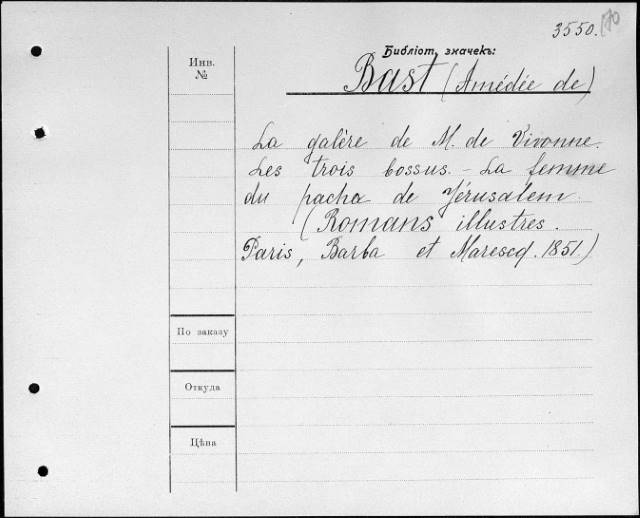 3550. (70
Библіот. значекъ:
Инв.
№
Bast (Amédée de)
La galère de M. de Vivonne.
Les trois bossus. – La femme
du pacha de Jérusalem.
(Romans illustres.
Paris, Barba et Marescq. 1851.)
По заказу
Откуда
Цѣна